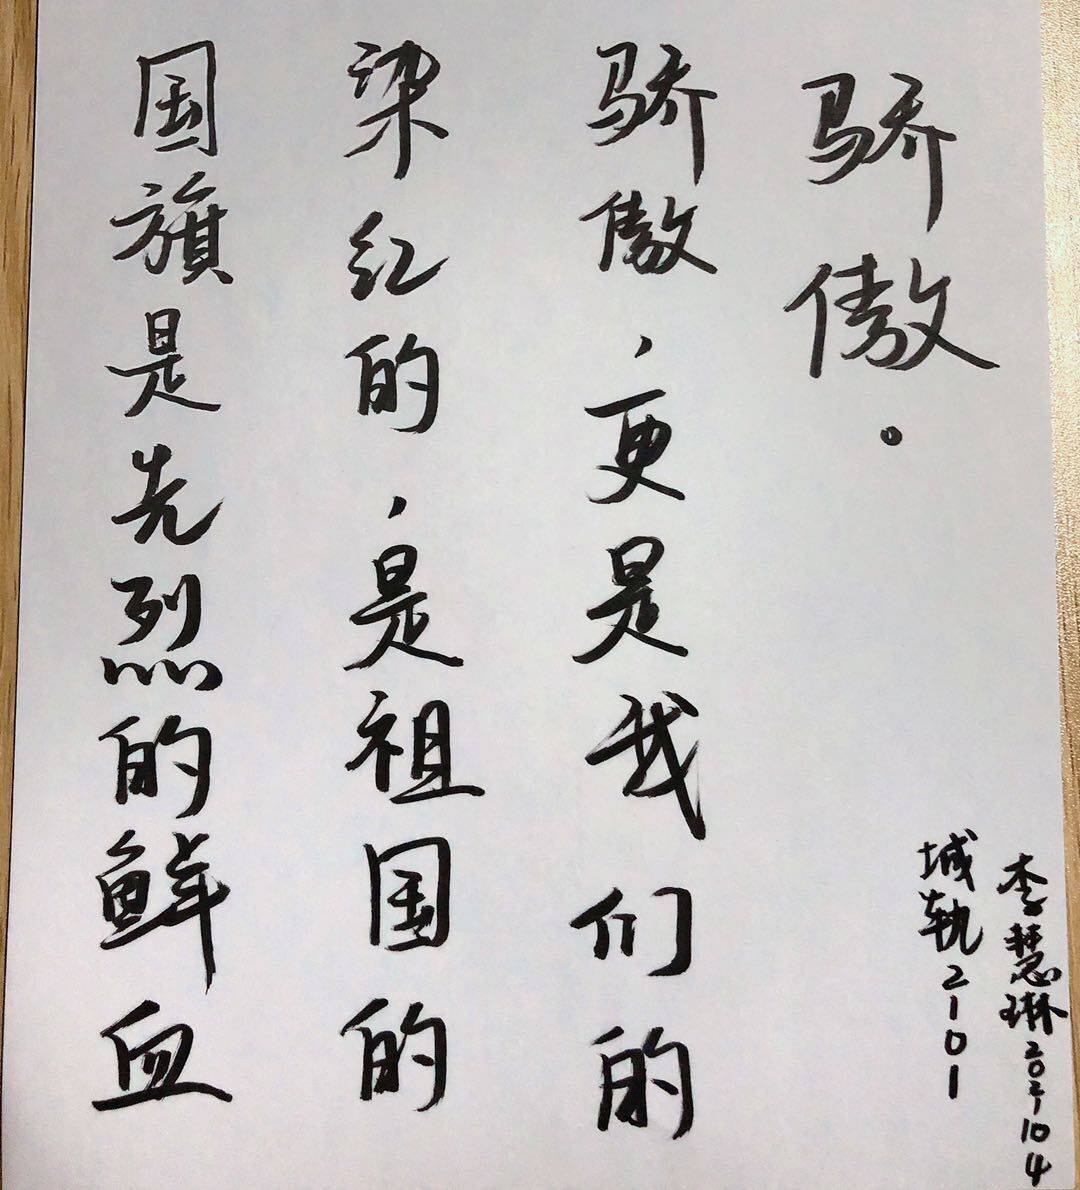 国旗是先烈的鲜血
染红的，是祖国的
骄傲，更是我们的
骄傲。
城轨2101
李慧琳2021104